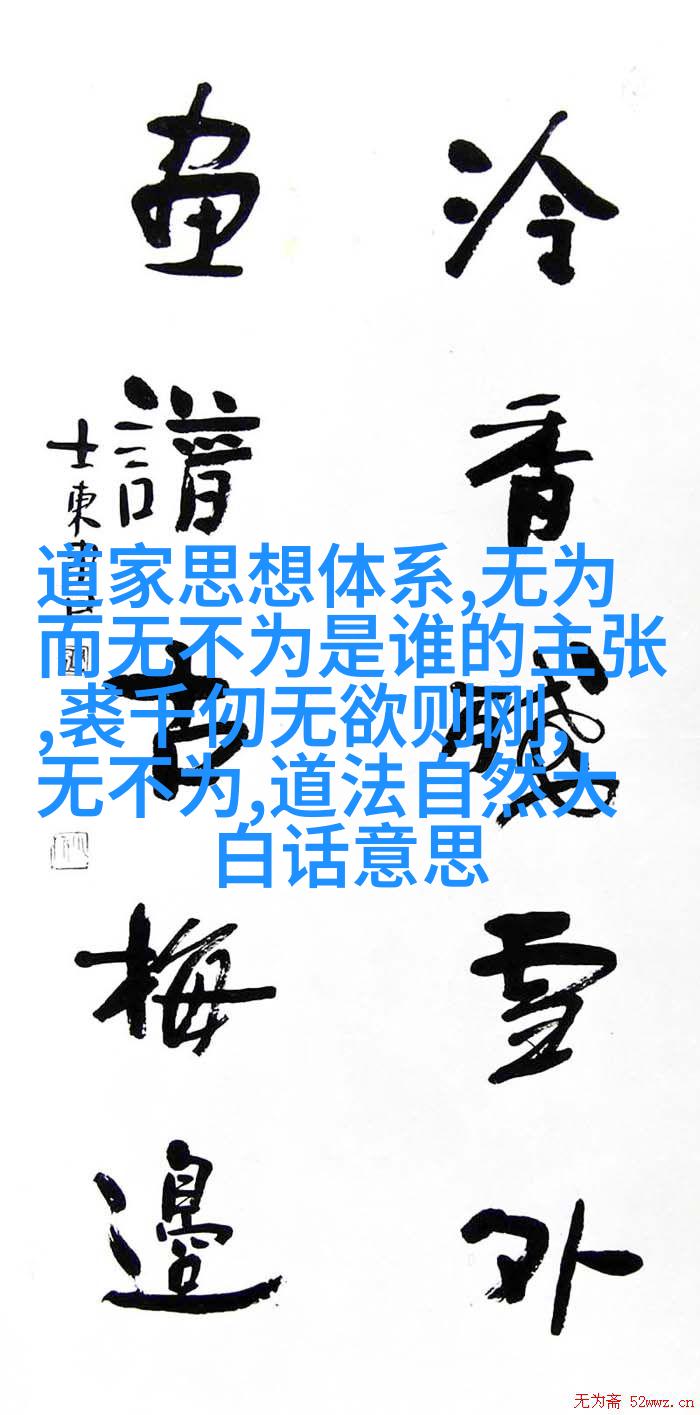 冷香雪外
畫譜梅邊
士東
道家思想体系,无为
而无不为是谁的主张
,裘千仞无欲则刚,
无不为,道法自然大
白话意思
无为斋 52wwz.cn